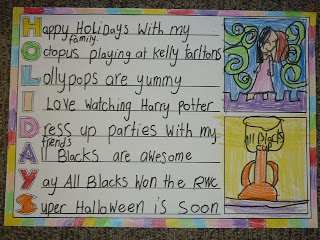 Happy Holidays with my
family.
Octopus playing at Kelly Tarltons
Lollypops are yummy
I Love watching Harry Potter
Dress up parties with my
friends
All Blacks are awesome
Yay All Blacks Won the RWC
Super Halloween is soon
All Blacks